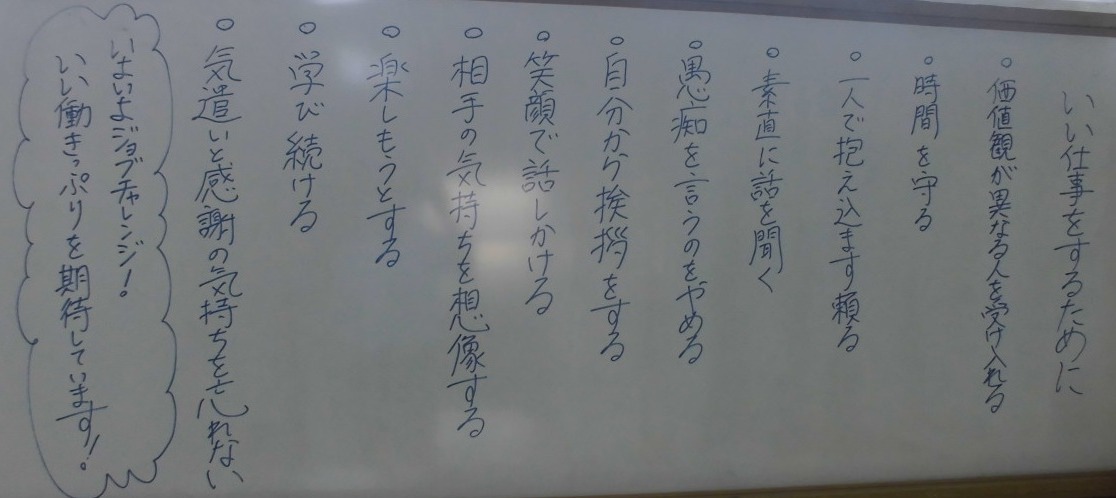 いい仕事をするために
○ 価値観が異なる人を受け入れる
○ 時間を守る
○ 一人で抱え込まず頼る
○ 素直に話を聞く
○ 愚痴を言うのをやめる
○ 自分から挨拶をする
○ 笑顔で話しかける
○ 相手の気持ちを想像する
○ 楽しもうとする
○ 学び続ける
○ 気遣いと感謝の気持ちを忘れない
いよいよジョブチャレンジ!
いい働きっぷりを期待しています!